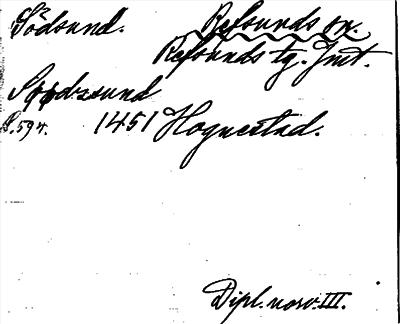 Södsund. Refsunds sn.
Refsunds tg. Jmt.
Sødzsund
S. 594. 1451 Hognestad.
Dipl. norv. III.